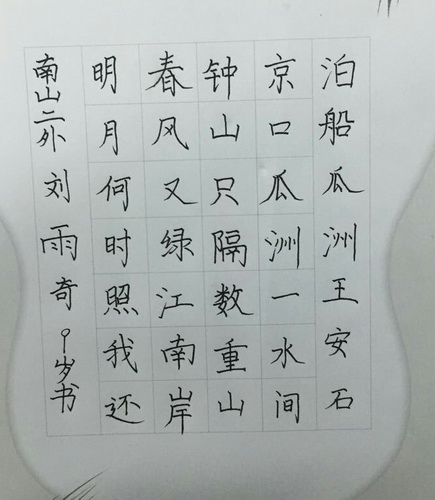 泊船瓜洲王安石
京口瓜洲一水间
钟山只隔数重山
春风又绿江南岸
明月何时照我还
南山二外刘雨奇9岁书